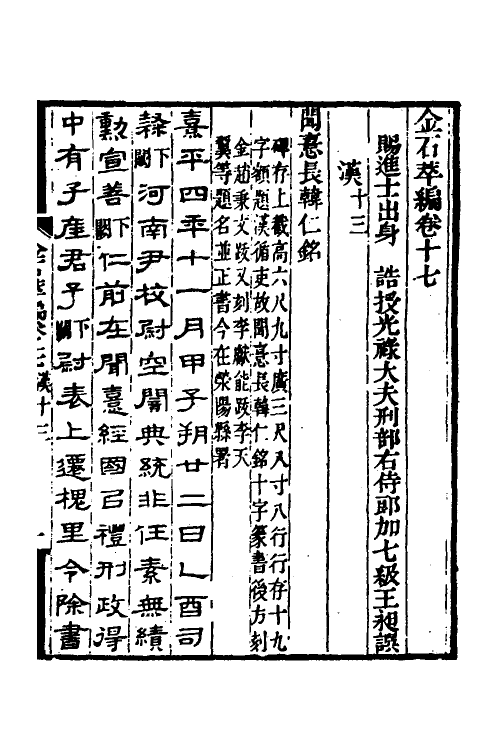 金石萃編卷十七
賜進士出身 誥授光祿大夫刑部右侍郎加七級王昶譔
漢十三
聞憙長韓仁銘
碑存上截高六尺九寸廣三尺八寸八行行存十九
字額題漢循吏故聞憙長韓仁銘十字篆書後方刻
金趙秉文跋又刻李獻能跋李天
翼等題名並正書今在滎陽縣署
熹平四年十一月甲子朔廿二日乙酉司
隸下闕河南尹校尉空闇典統非任素無績
勳宣善下闕仁前在聞憙經國以禮刑政得
中有子産君子下闕尉表上遷槐里令除書